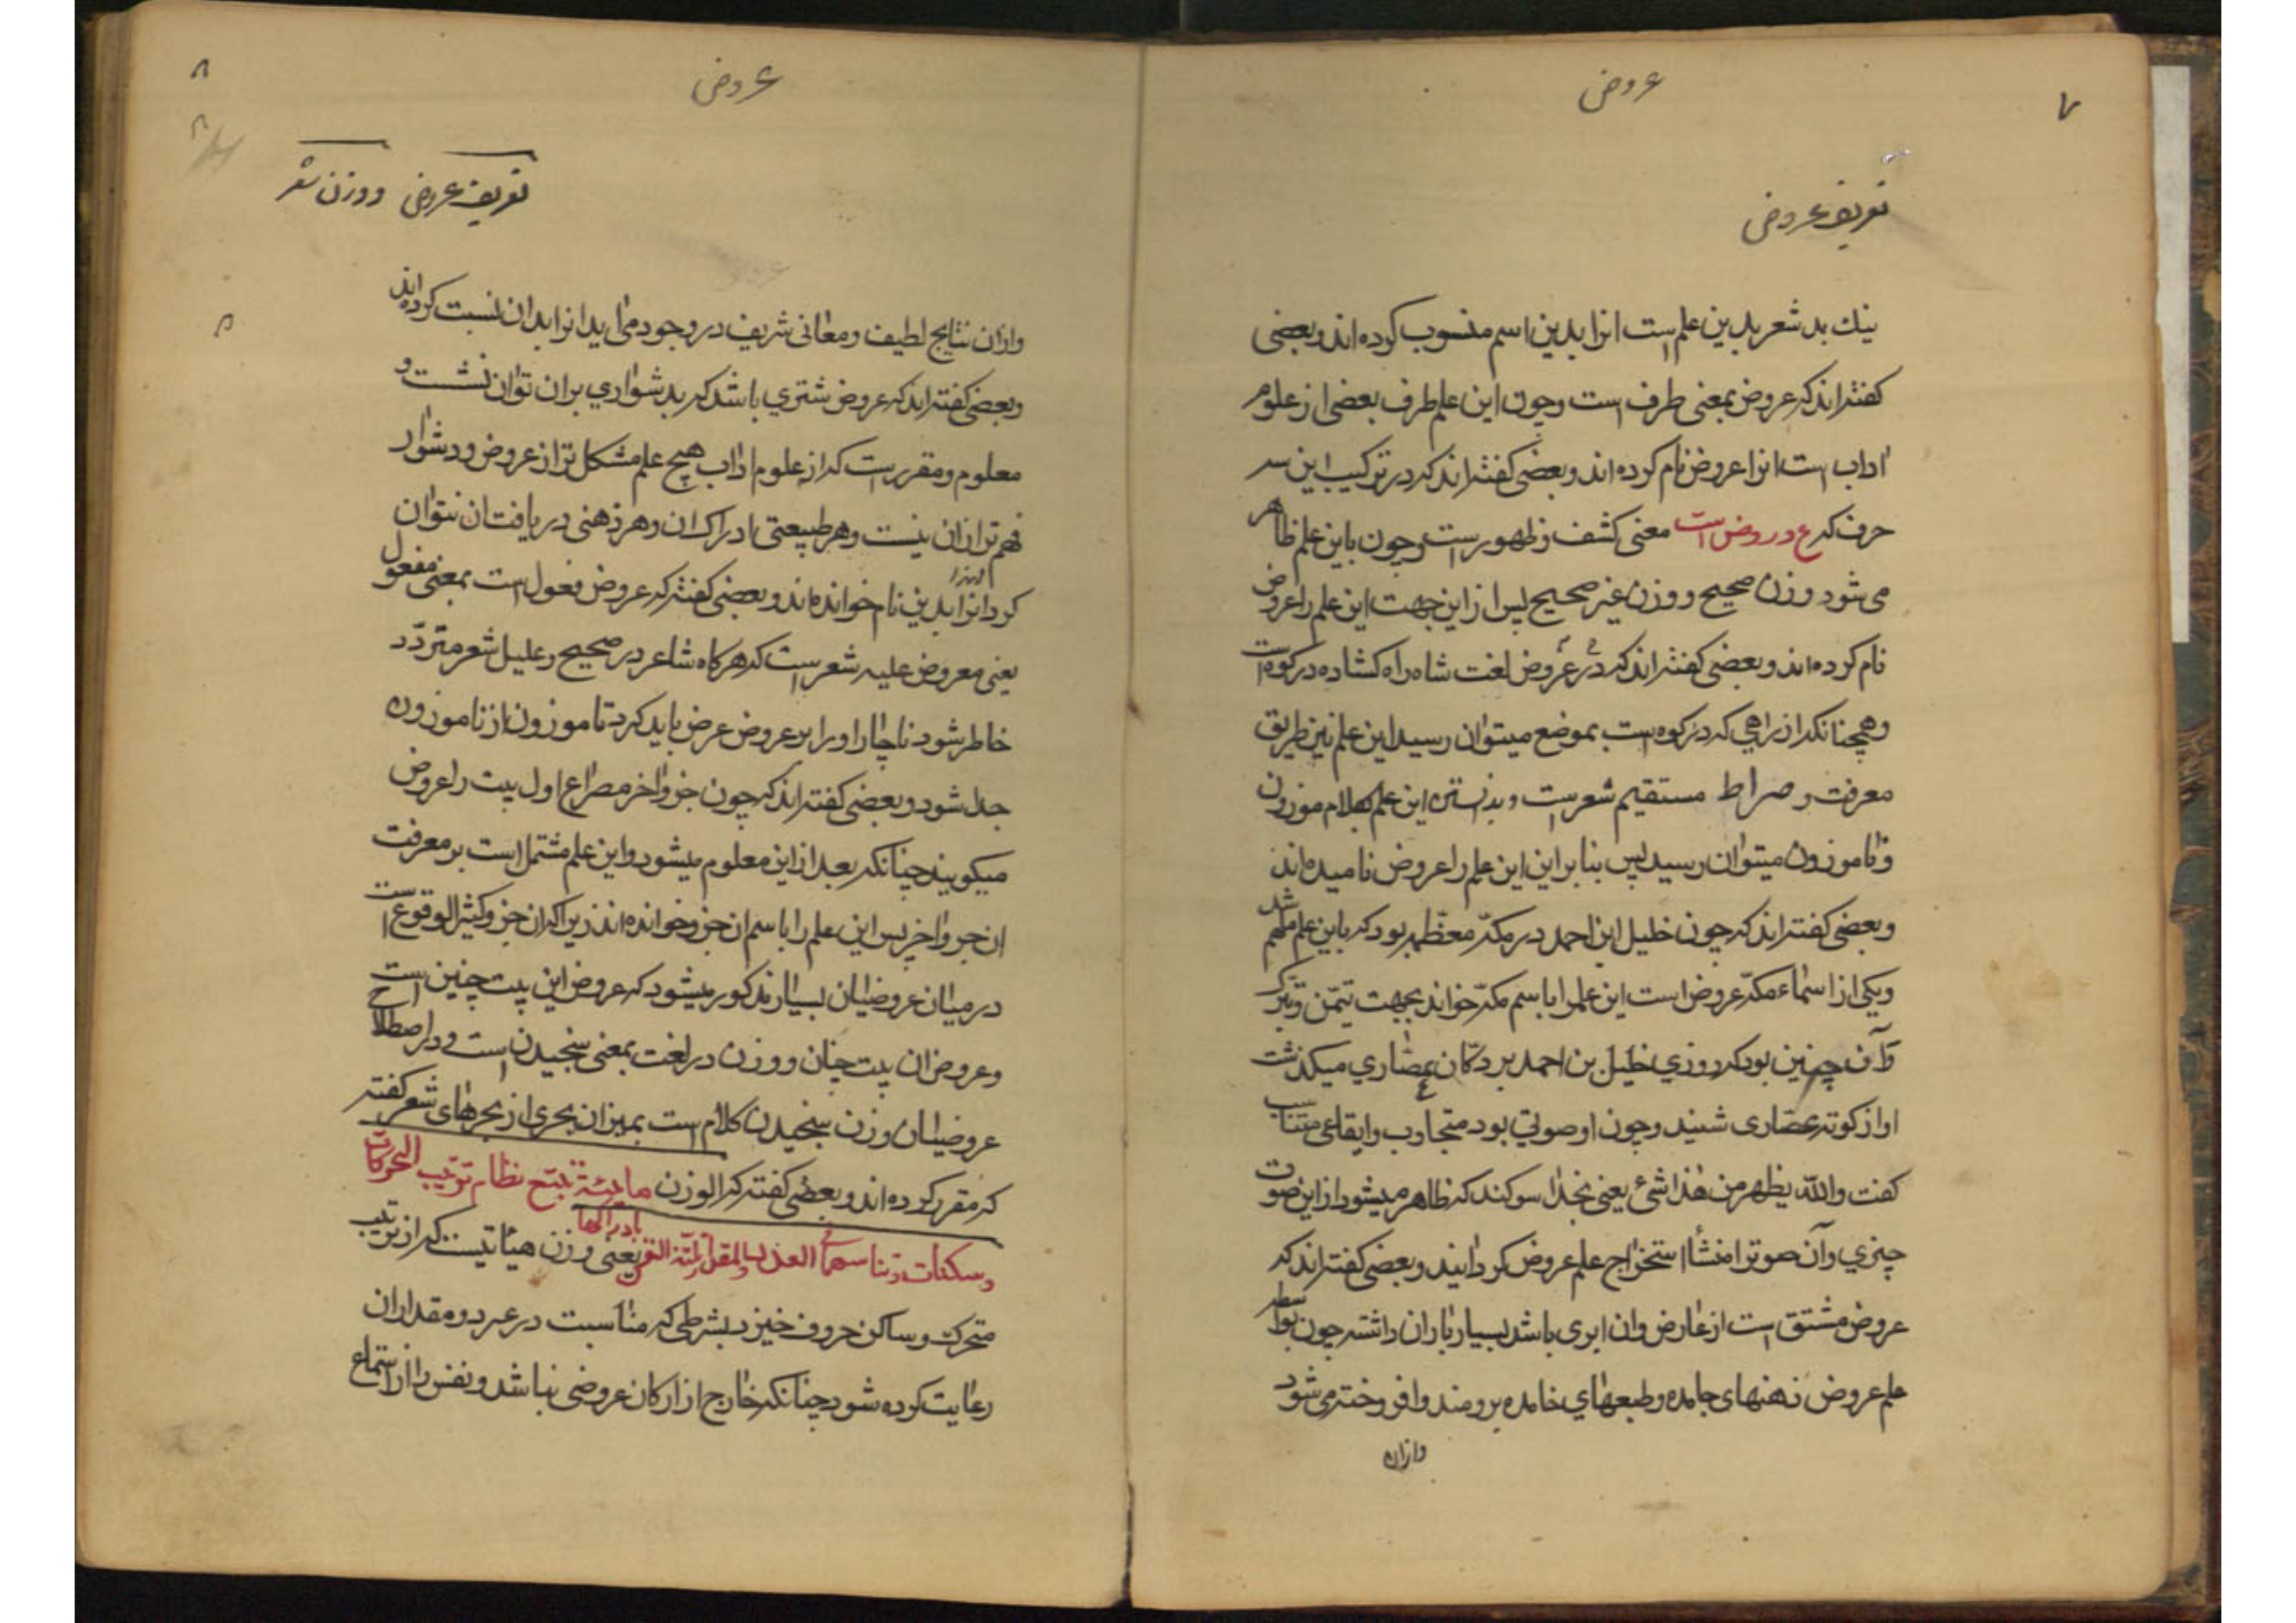 ۷
عروض
تعریف عروض
نیك بد شعر بدین علم است انرا بدین اسم منسوب کرده اند و بعضی
کفته اند که عروض بمعنی طرف است وچون این علم طرف بعضی از علوم
اداب است انرا عروض نام کرده اند و بعضی کفته اند که در ترکیب این سه
حرف که ع و ر و ض است معنی کشف و ظهور است وچون باین علم ظاهر
می شود وزن صحیح و وزن غیر صحیح پس از این جهت این علم را عروض
نام کرده اند و بعضی کفته اند که در عروض لغت شاه راه کشاده در کوه است
وهمچنانکه از راهی که در کوه است بموضع میتوان رسید این علم نیز طریق
معرفت و صراط مستقیم شعر است و بدانستن این علم بکلام موزون
و ناموزون میتوان رسید پس بنا بر این این علم را عروض نامیده اند
وبعضی کفته اند که چون خلیل ابن احمد در مکّه معظّمه بود که باین علم ملهم شد
ویکی از اسماء مکّه عروض است این علم را باسم مکّه خواند بجهت تیمّن و تبرّک
وآن چنین بود که روزی خلیل بن احمد بر دکّان عصّاری میکذشت
اواز کوته عصّاری شنید وچون او صوتی بود متجاوب وایقاعی متناسب
کفت والله یظهر من هذا شیٔ یعنی بخدا سوکند که ظاهر میشود از این صوت
چیزی وآن صوترا منشأ استخراج علم عروض کردانید و بعضی کفته اند که
عروض مشتق است از عارض وان ابری باشد بسیار باران داشته چون بواسطه
علم عروض ذهنهای جامده وطبعهای خامده برومند وافروخته می شود
وازان
۸
عروض
۸
تعریف عروض و وزن شعر
وازان نتایج لطیف ومعانی شریف در وجود می اید انرا بدان نسبت کرده اند
وبعضی کفته اند که عروض شتری باشد که بدشواری بران توان نشست و
معلوم ومقرر است که از علوم اداب هیچ علم مشکل تر از عروض ودشوار
فهم تر ازان نیست وهر طبیعتی ادراک ان وهر ذهنی دریافت ان نتوان
کرد انرا بدین نام خوانده اند و بعضی کفته که عروض فعول است بمعنی مفعول
یعنی معروض علیه شعر است که هرکاه شاعر در صحیح و علیل شعر متردّد
خاطر شود ناچار او را بر عروض عرض باید کرد تا موزون از ناموزون
جدا شود و بعضی کفته اند که چون جزو اخر مصراع اول بیت را عروض
میکویند چنانکه بعد از این معلوم میشود واین علم مشتمل است بر معرفت
ان جزو اخر پس این علم را باسم ان جزو خوانده اند زیرا که ان جزو کثیر الوقوع است
در میان عروضیان بسیار مذکور میشود که عروض این بیت چنین است
وعروض ان بیت چنان ووزن در لغت بمعنی سنجیدن است ودر اصطلاح
عروضیان وزن سنجیدن کلام است بمیزان بحری از بحرهای شعر کفته
که مقرر کرده اند وبعضی کفته که الوزن ما هیئة تتبع نظام ترتیب الحرکات
وسکنات وتناسبهما فی العدد والمقدار لتّذ النفس بادراکها یعنی وزن هیئاتیست که از ترتیب
متحرک وساکن حروف خیزد بشرطی که مناسبت در عدد ومقدار ان
رعایت کرده شود چنانکه خارج از ارکان عروضی نباشد ونفس را از استماع